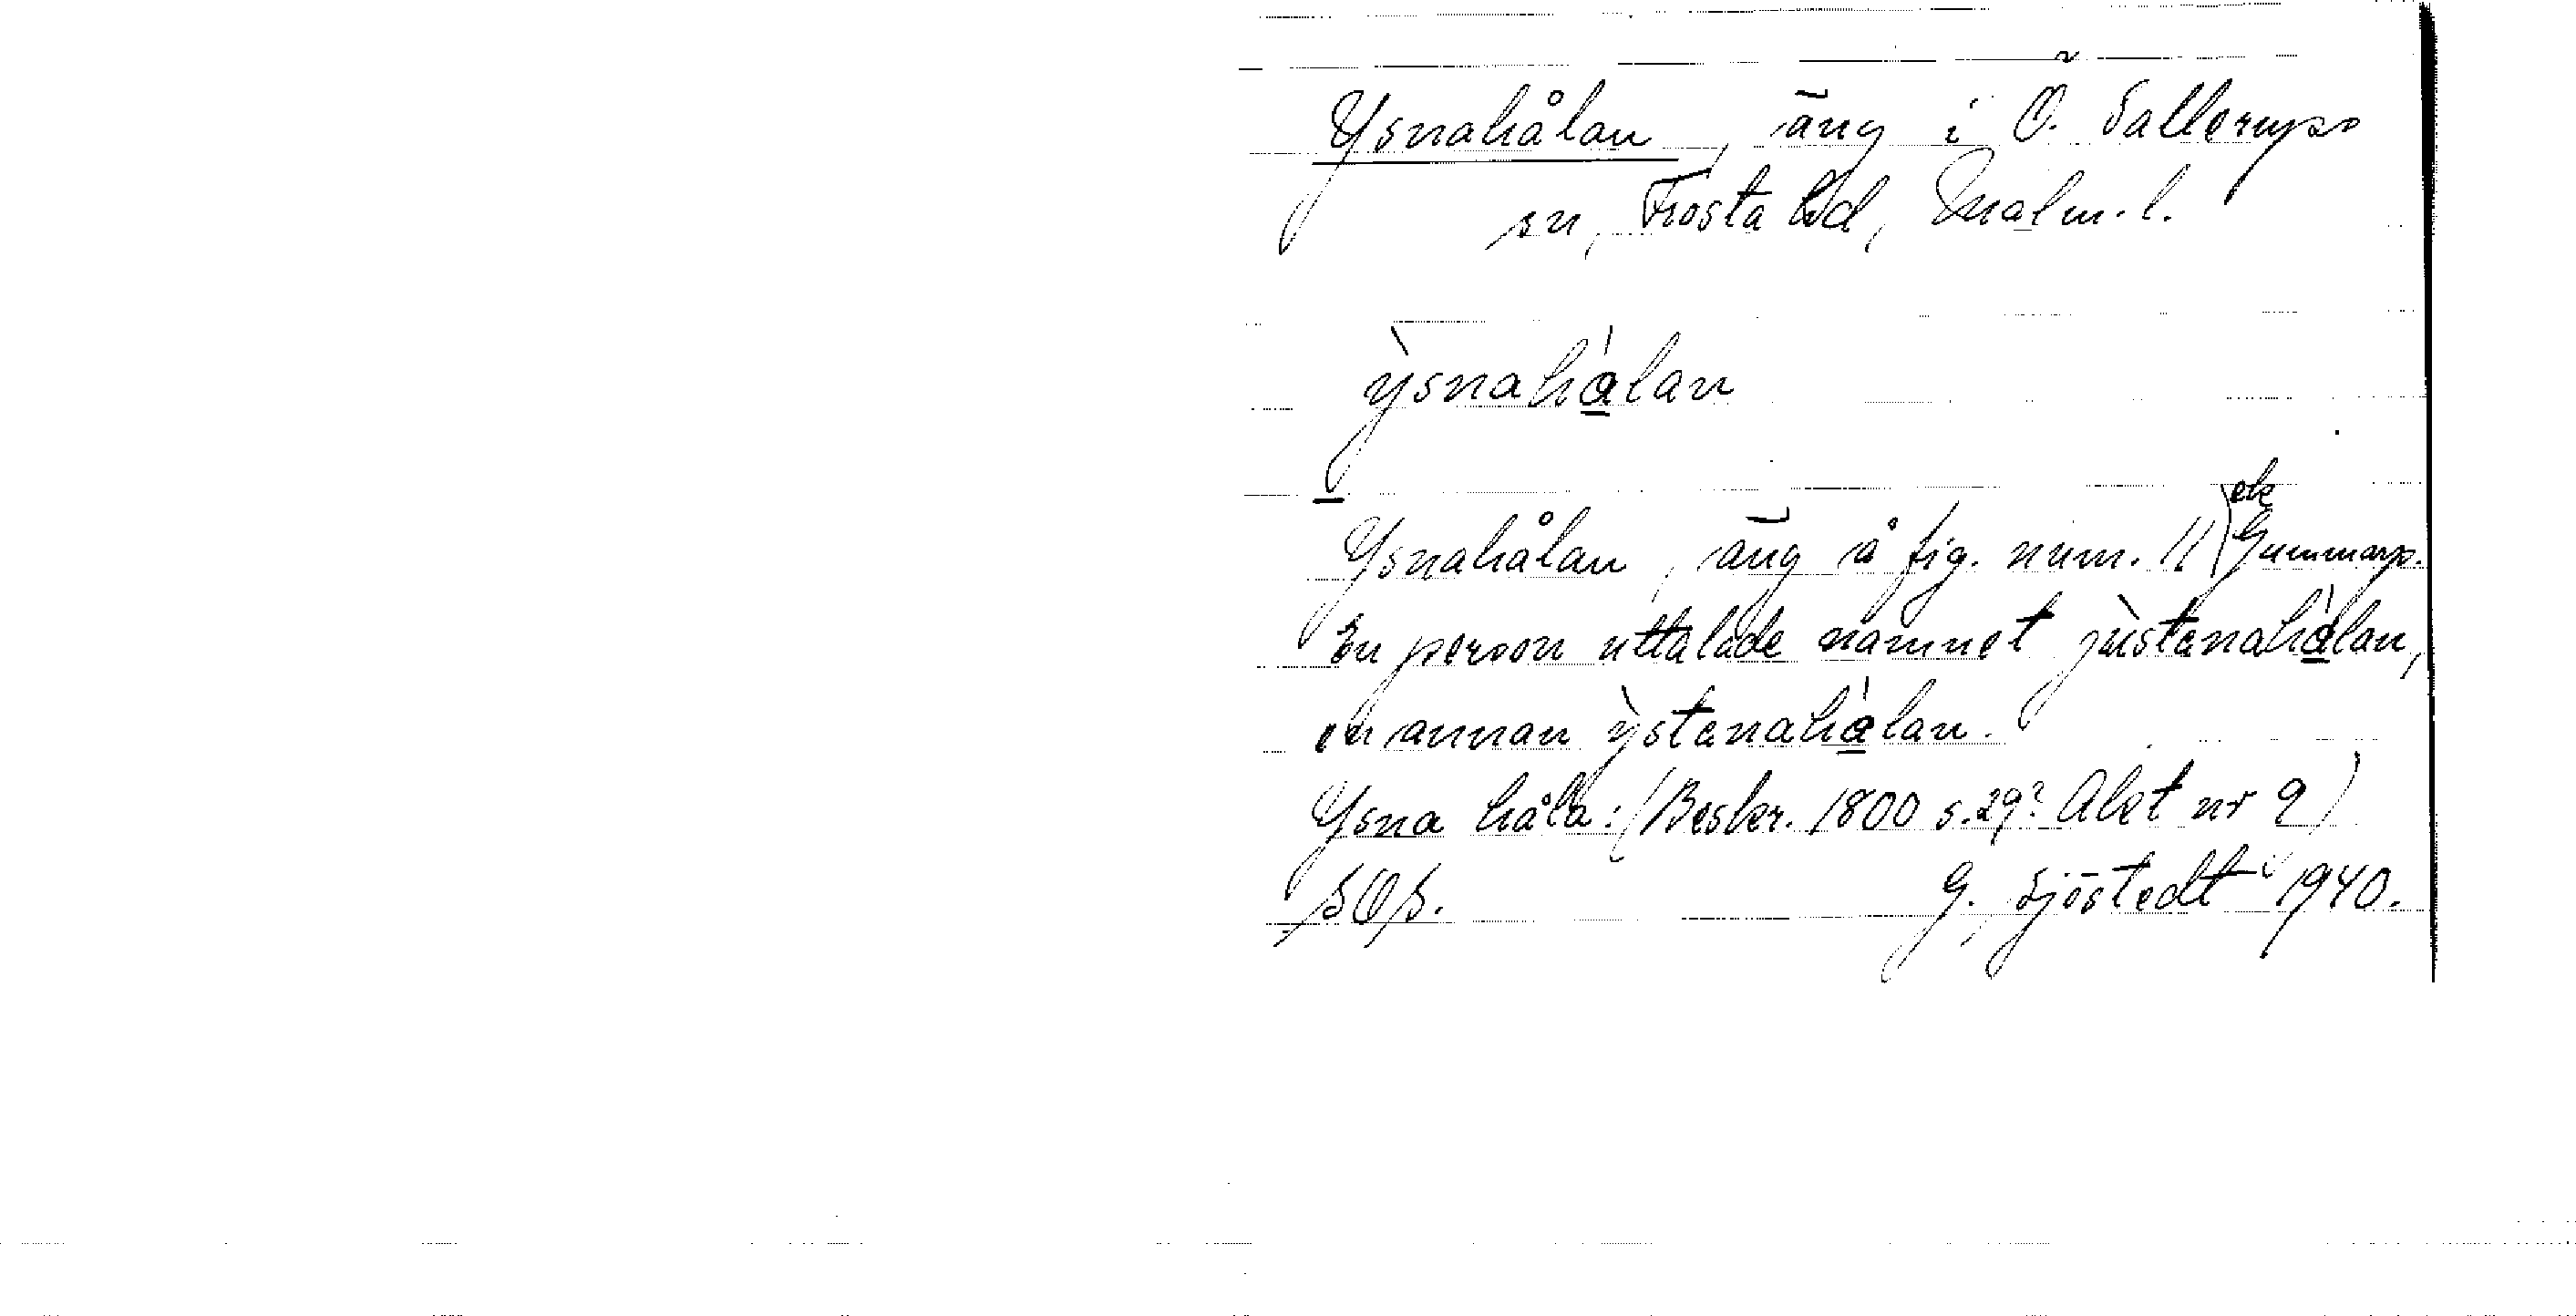 Ysnahålan, äng i Ö. Sallerups
sn, Frosta hd, Malm. l.
ỳsnahàlan
Ysnahålan, äng å fig. num. 11 ek Gummarp.
En person uttalade namnet jùstanahàlan,
en annan ỳstanahàlan.
Ysna håla: (Beskr. 1800 s. 29? Akt nr 9)
SOS. G. Sjöstedt 1940.